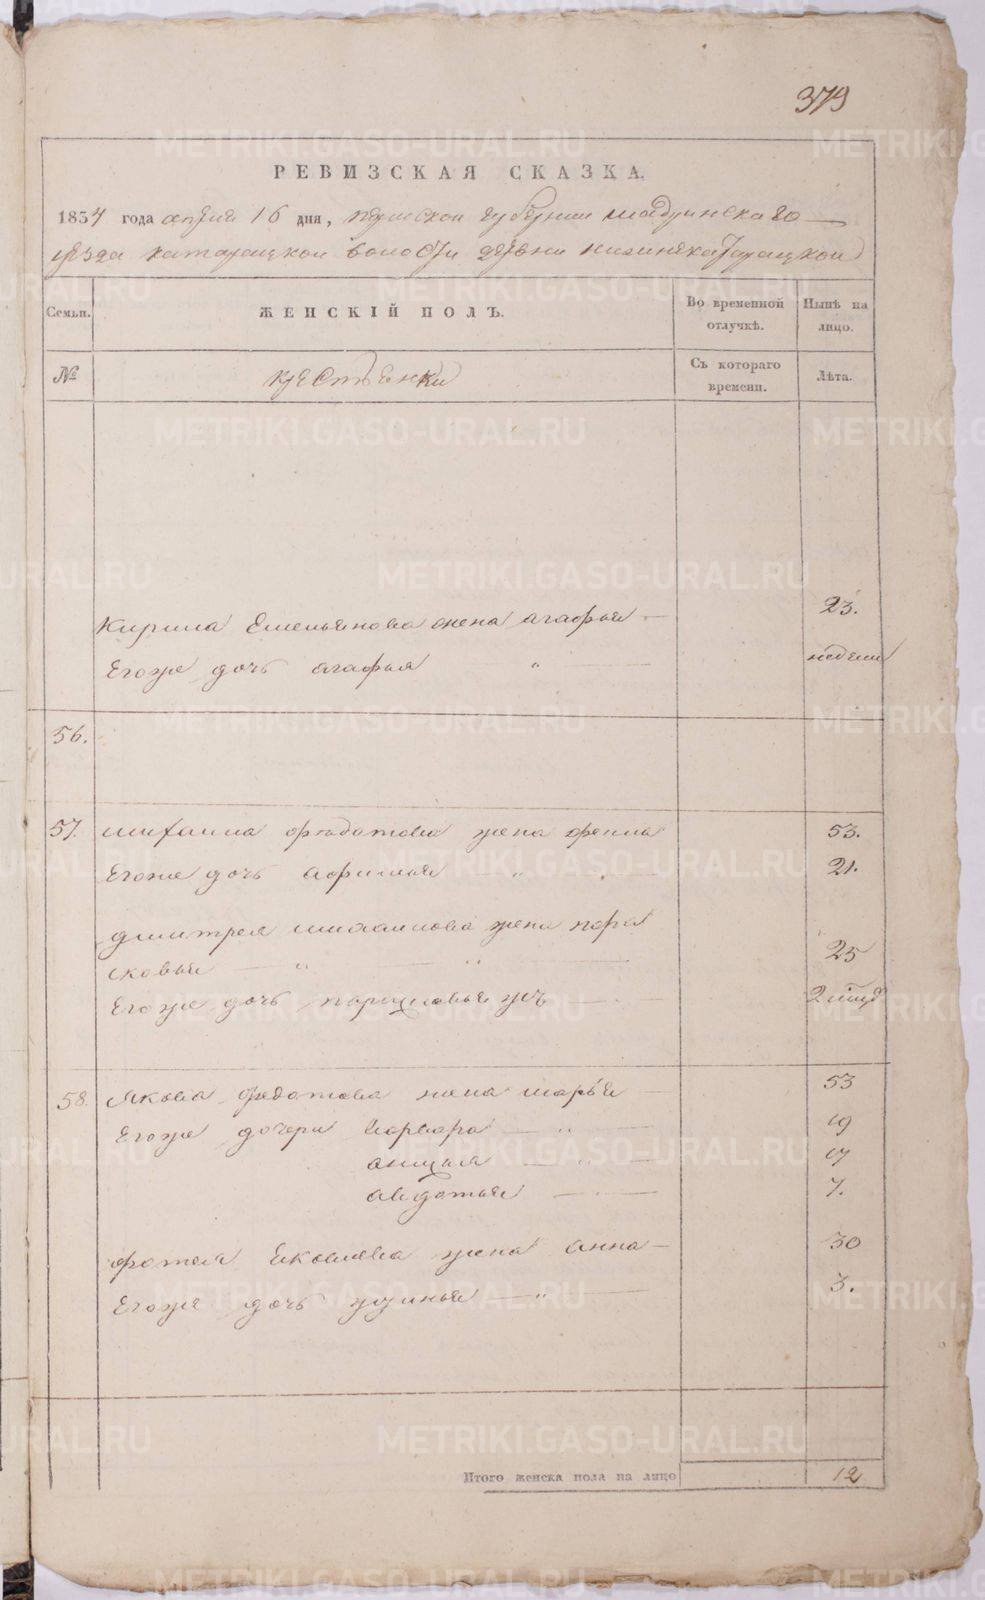 379
РЕВИЗСКАЯ СКАЗКА.
1834 года апреля 16 дня, пермской губернии шадринскаго
уезда катарацкой волости деревни нижнекатарацкой
Семьи.
ЖЕНСКІЙ ПОЛЪ.
Во временной отлучкѣ.
Нынѣ на лицо.
№
крестьенки
Съ котораго времени.
Лѣта.
Кирила Емельянова жена агафья 23.
Егоже дочь агафья недели
56.
57. михаила федотова жена 53.
Егоже дочь афимья 21.
дмитрея михаилова жена пора
сковья 25
Егоже дочь 2
58. Якова федотова жена марья 53
Егоже дочери варвара 19
анисья 17
авдотья 7.
фотея Яковлева жена анна 30
Егоже дочь устинья 3.
Итого женска пола на лицо 12
METRIKI.GASO-URAL.RU